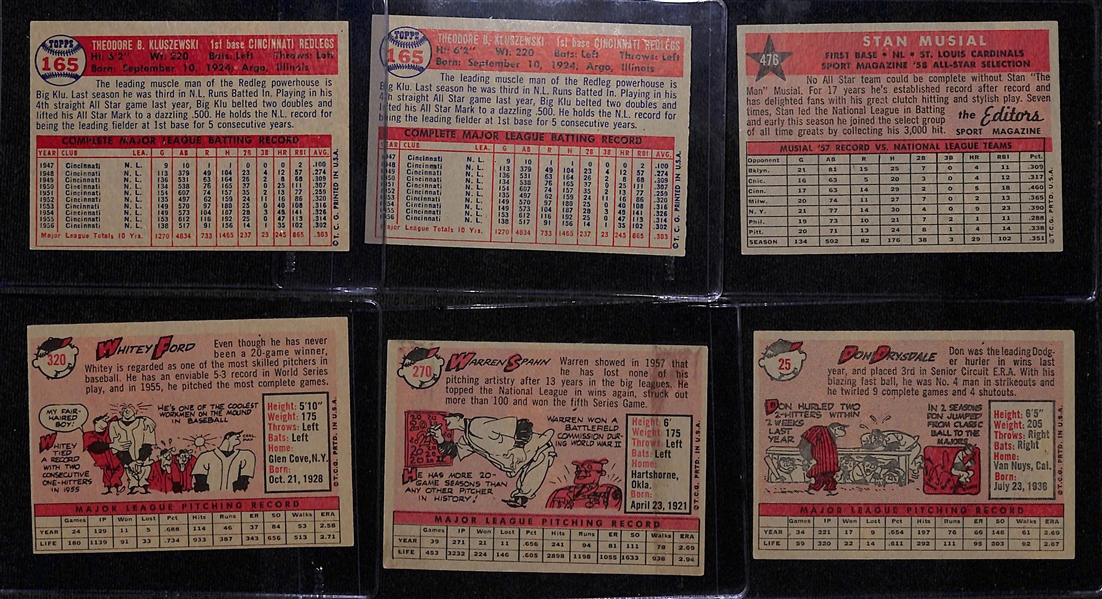 TOPPS
165
THEODORE B. KLUSZEWSKI 1st base CINCINNATI REDLEGS
Ht: 6'2" Wt: 220 Bats: Left Throws: Left
Born: September 10, 1924, Argo, Illinois
The leading muscle man of the Redleg powerhouse is
Big Klu. Last season he was third in N.L. Runs Batted In. Playing in his
4th straight All Star game last year, Big Klu belted two doubles and
lifted his All Star Mark to a dazzling .500. He holds the N.L. record for
being the leading fielder at 1st base for 5 consecutive years.
COMPLETE MAJOR LEAGUE BATTING RECORD
YEAR CLUB LEA. G AB R H 2B 3B HR RBI AVG.
1947 Cincinnati N.L. 9 10 1 1 0 0 0 2 .100
1948 Cincinnati N.L. 113 379 49 104 23 4 12 57 .274
1949 Cincinnati N.L. 136 531 63 164 26 2 8 68 .309
1950 Cincinnati N.L. 134 538 76 165 37 0 25 111 .307
1951 Cincinnati N.L. 154 607 74 157 35 2 13 77 .259
1952 Cincinnati N.L. 135 497 62 159 24 11 16 86 .320
1953 Cincinnati N.L. 149 570 97 180 25 0 40 108 .316
1954 Cincinnati N.L. 149 573 104 187 28 3 49 141 .326
1955 Cincinnati N.L. 153 612 116 192 25 0 47 113 .314
1956 Cincinnati N.L. 138 517 91 156 14 1 35 102 .302
Major League Totals 10 Yrs. 1270 4834 733 1465 237 23 245 865 .303
© T.C.G. PRINTED IN U.S.A.
TOPPS
165
THEODORE B. KLUSZEWSKI 1st base CINCINNATI REDLEGS
Ht: 6'2" Wt: 220 Bats: Left Throws: Left
Born: September 10, 1924, Argo, Illinois
The leading muscle man of the Redleg powerhouse is
Big Klu. Last season he was third in N.L. Runs Batted In. Playing in his
4th straight All Star game last year, Big Klu belted two doubles and
lifted his All Star Mark to a dazzling .500. He holds the N.L. record for
being the leading fielder at 1st base for 5 consecutive years.
COMPLETE MAJOR LEAGUE BATTING RECORD
YEAR CLUB LEA. G AB R H 2B 3B HR RBI AVG.
1947 Cincinnati N.L. 9 10 1 1 0 0 0 2 .100
1948 Cincinnati N.L. 113 379 49 104 23 4 12 57 .274
1949 Cincinnati N.L. 136 531 63 164 26 2 8 68 .309
1950 Cincinnati N.L. 134 538 76 165 37 0 25 111 .307
1951 Cincinnati N.L. 154 607 74 157 35 2 13 77 .259
1952 Cincinnati N.L. 135 497 62 159 24 11 16 86 .320
1953 Cincinnati N.L. 149 570 97 180 25 0 40 108 .316
1954 Cincinnati N.L. 149 573 104 187 28 3 49 141 .326
1955 Cincinnati N.L. 153 612 116 192 25 0 47 113 .314
1956 Cincinnati N.L. 138 517 91 156 14 1 35 102 .302
Major League Totals 10 Yrs. 1270 4834 733 1465 237 23 245 865 .303
© T.C.G. PRINTED IN U.S.A.
476
STAN MUSIAL
FIRST BASE • NL • ST. LOUIS CARDINALS
SPORT MAGAZINE '58 ALL-STAR SELECTION
No All Star team could be complete without Stan "The
Man" Musial. For 17 years he's established record after record and
has delighted fans with his great clutch hitting and stylish play. Seven
times, Stan led the National League in Batting
and early this season he joined the select group
of all time greats by collecting his 3,000 hit.
the Editors
SPORT MAGAZINE
MUSIAL '57 RECORD VS. NATIONAL LEAGUE TEAMS
Opponent G AB R H 2B 3B HR RBI Pct.
Bklyn. 21 81 15 25 7 0 4 11 .309
Chic. 16 63 5 20 3 0 2 12 .317
Cinn. 17 63 14 29 2 0 5 18 .460
Milw. 20 74 11 27 7 0 2 13 .365
N.Y. 21 77 14 30 4 0 9 23 .390
Phil. 19 73 10 21 7 2 1 11 .288
Pitt. 20 71 13 24 8 1 4 14 .338
SEASON 134 502 82 176 38 3 29 102 .351
© T.C.G. PRTD. IN U.S.A.
320
WHITEY FORD
Even though he has never
been a 20-game winner,
Whitey is regarded as one of the most skilled pitchers in
baseball. He has an enviable 5-3 record in World Series
play, and in 1955, he pitched the most complete games.
MY FAIR-
HAIRED
BOY!
WHITEY
TIED
RECORD
WITH TWO
CONSECUTIVE
ONE-HITTERS
IN 1955
HE'S ONE OF THE COOLEST
WORKMEN ON THE MOUND
IN BASEBALL
Height: 5'10"
Weight: 175
Throws: Left
Bats: Left
Home:
Glen Cove, N.Y.
Born:
Oct. 21, 1928
© T.C.G. PRTD. IN U.S.A.
MAJOR LEAGUE PITCHING RECORD
Games IP Won Lost Pct Hits Runs ER SO Walks ERA
YEAR 24 129 11 5 .688 114 46 37 84 53 2.58
LIFE 180 1139 91 33 .734 933 387 343 656 513 2.71
270
WARREN SPAHN
Warren showed in 1957 that
he has lost none of his
pitching artistry after 13 years in the big leagues. He
topped the National League in wins again, struck out
more than 100 and won the fifth Series Game.
WARREN WON A
BATTLEFIELD
COMMISSION DUR-
ING WORLD WAR II
HE HAS MORE 20-
GAME SEASONS THAN
ANY OTHER PITCHER
IN HISTORY!
Height: 6'
Weight: 175
Throws: Left
Bats: Left
Home:
Hartshorne,
Okla.
Born:
April 23, 1921
© T.C.G. PRTD. IN U.S.A.
MAJOR LEAGUE PITCHING RECORD
Games IP Won Lost Pct. Hits Runs ER SO Walks ERA
YEAR 39 271 21 11 .656 241 94 81 111 78 2.69
LIFE 453 3232 224 146 .605 2898 1198 1055 1633 938 2.94
25
DON DRYSDALE
Don was the leading Dodg-
er hurler in wins last
year, and placed 3rd in Senior Circuit E.R.A. With his
blazing fast ball, he was No. 4 man in strikeouts and
he twirled 9 complete games and 4 shutouts.
DON HURLED TWO
2-HITTERS WITHIN
2 WEEKS
LAST
YEAR
IN 2 SEASONS
DON JUMPED
FROM CLASS C
BALL TO THE
MAJORS
Height: 6'5"
Weight: 205
Throws: Right
Bats: Right
Home:
Van Nuys, Cal.
Born:
July 23, 1936
© T.C.G. PRTD. IN U.S.A.
MAJOR LEAGUE PITCHING RECORD
Games IP Won Lost Pct Hits Runs ER SO Walks ERA
YEAR 34 221 17 9 .654 197 76 66 148 61 2.69
LIFE 59 320 22 14 .611 292 111 95 203 92 2.67